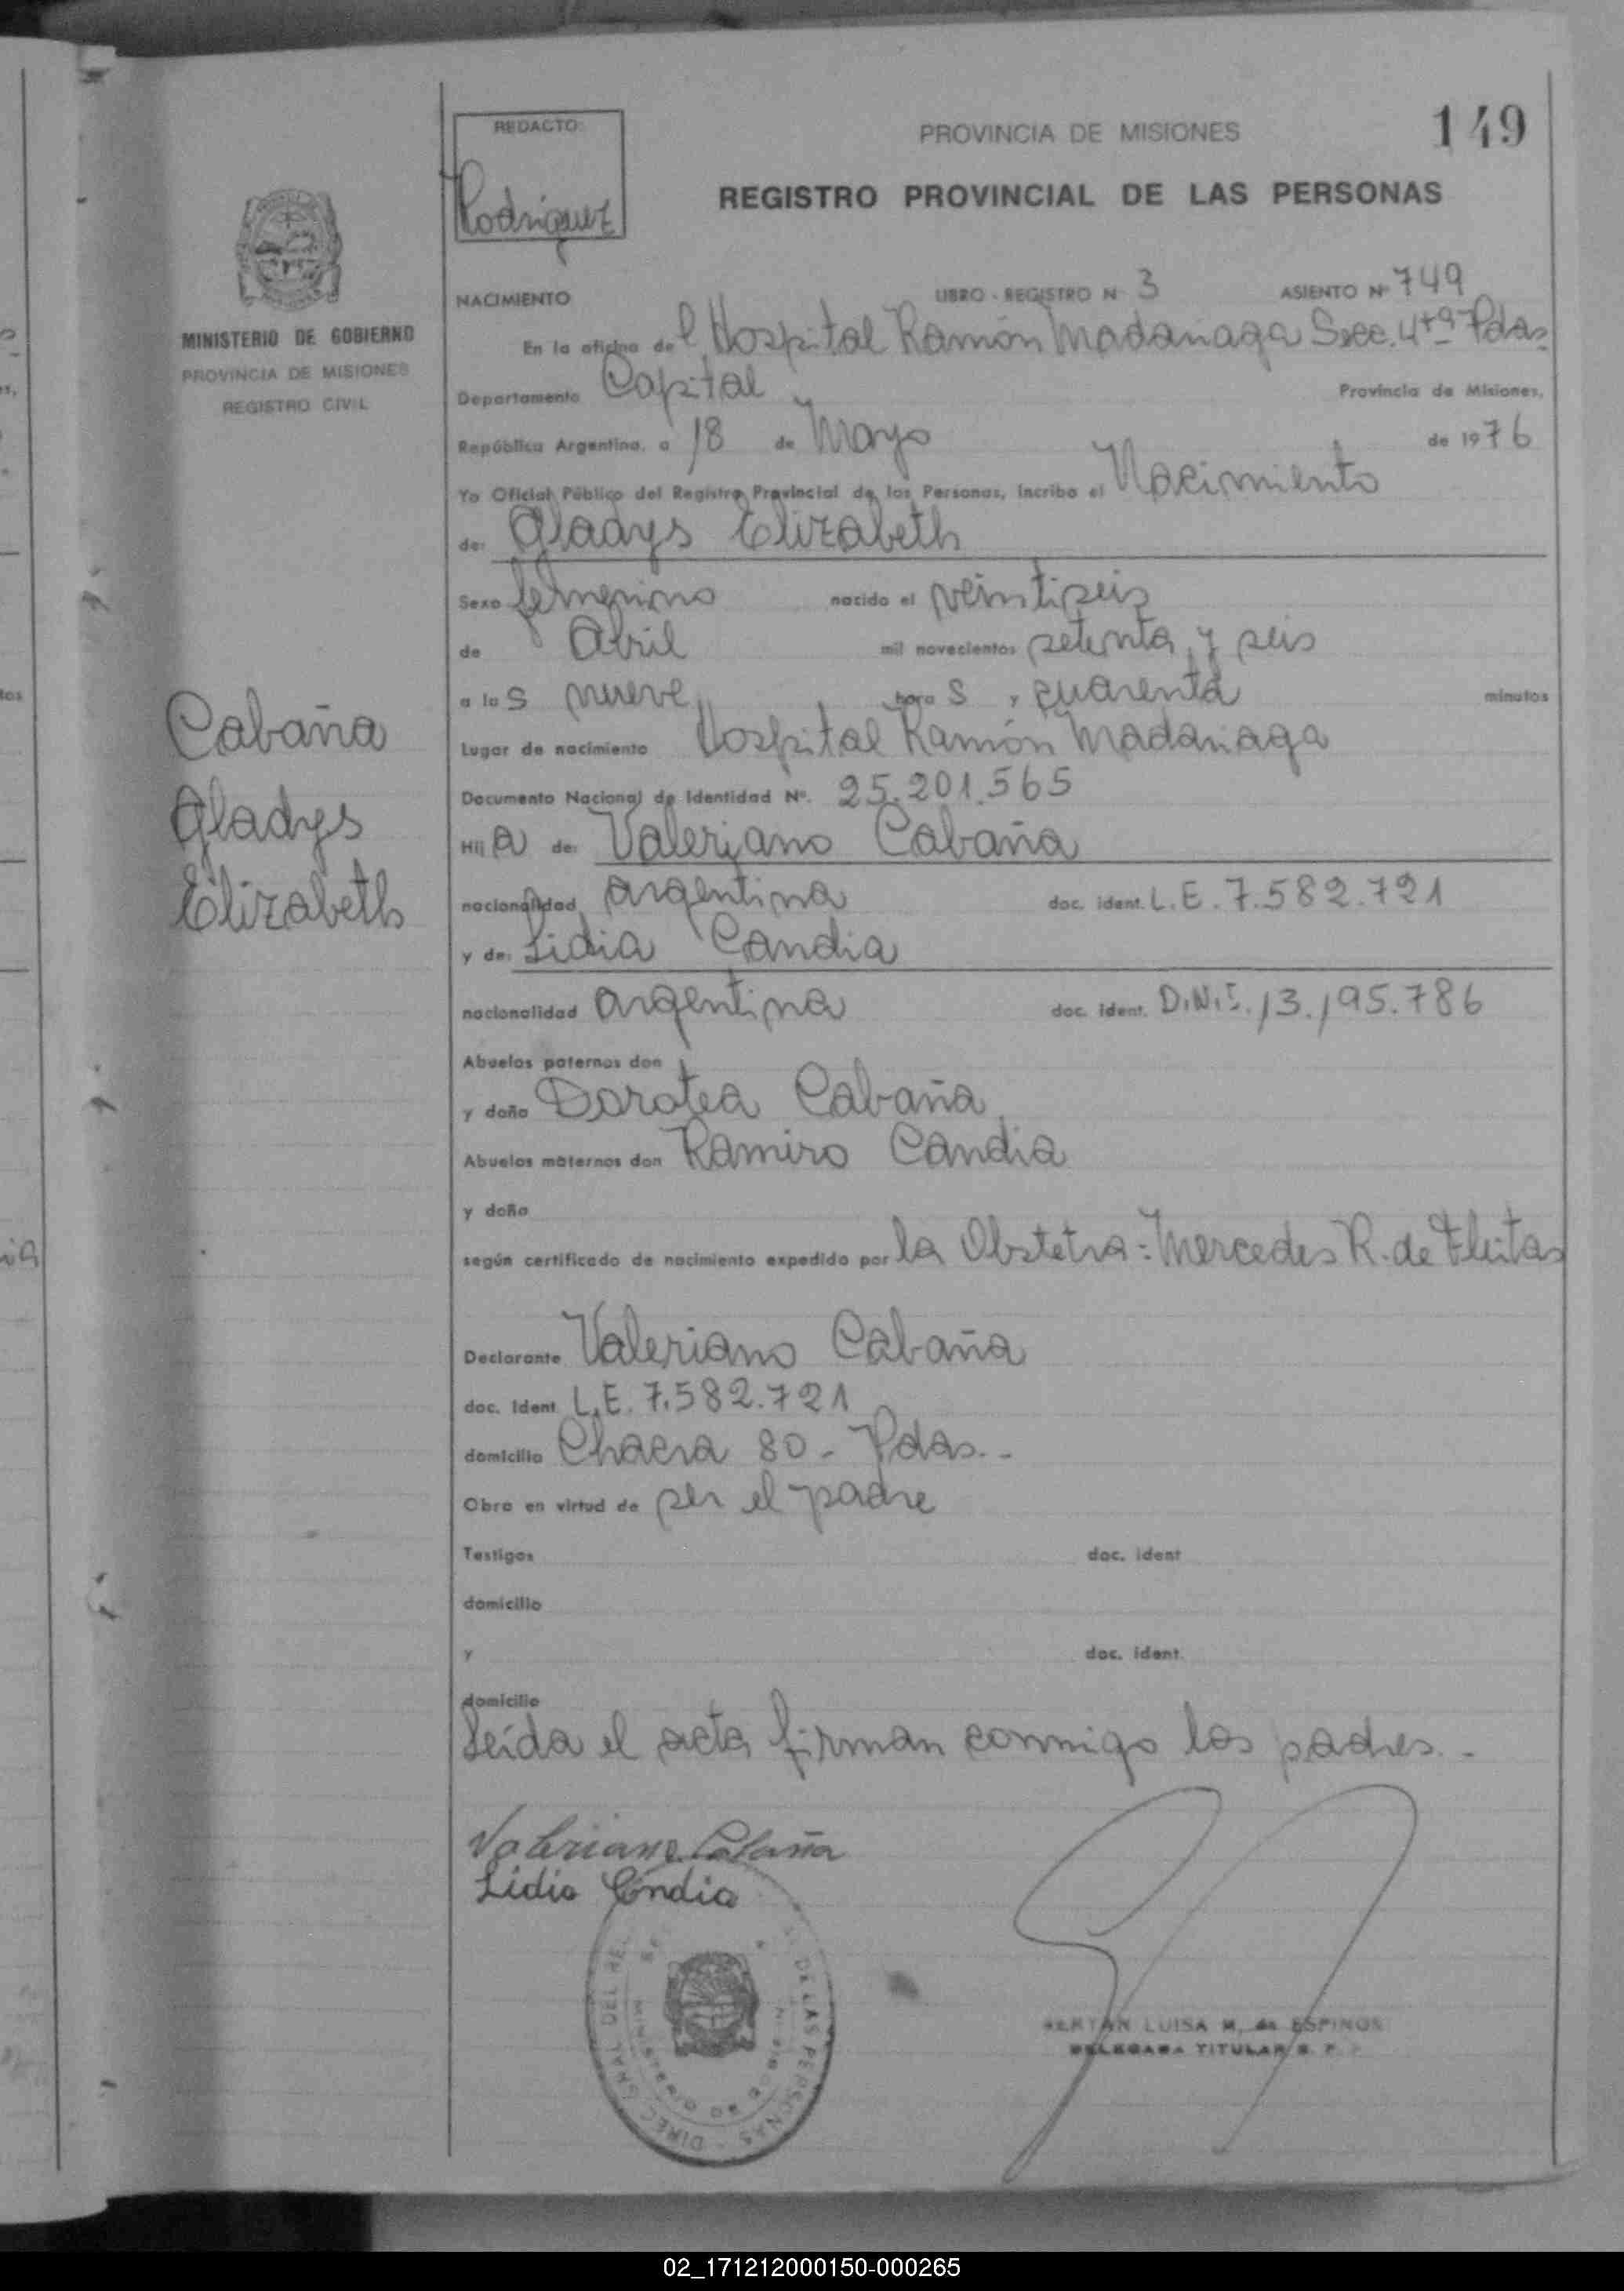 149
REDACTO:
Rodriguez
PROVINCIA DE MISIONES
REGISTRO PROVINCIAL DE LAS PERSONAS
MINISTERIO DE GOBIERNO
PROVINCIA DE MISIONES
REGISTRO CIVIL
NACIMIENTO LIBRO - REGISTRO N 3 ASIENTO Nº 749
En la oficina del Hospital Ramón Madariaga Secc. 4ta Pdas.
Departamento Capital Provincia de Misiones,
República Argentina, a 18 de Mayo de 1976
Yo Oficial Público del Registro Provincial de las Personas, incribo el Nacimiento
de: Gladys Elizabeth
Sexo femenino nacido el veintiseis
de Abril mil novecientos setenta y seis
a las nueve horas y cuarenta minutos
Lugar de nacimiento Hospital Ramón Madariaga
Documento Nacional de Identidad Nº. 25.201.565
Hija de: Valeriano Cabaña
nacionalidad argentina doc. ident. L.E. 7.582.721
y de: Lidia Candia
nacionalidad argentina doc. ident. D.N.I. 13.195.786
Abuelos paternos don
y doña Dorotea Cabaña
Abuelos maternos don Ramiro Candia
y doña
según certificado de nacimiento expedido por la Obstetra: Mercedes R. de Fleitas
Declarante Valeriano Cabaña
doc. Ident. L.E. 7.582.721
domicilio Chacra 80 - Pdas. -
Obra en virtud de ser el padre
Testigos doc. ident
domicilio
y doc. ident.
domicilio
Leída el acta firman conmigo los padres. -
Cabaña
Gladys
Elizabeth
Valeriano Cabaña
Lidia Candia
LUISA M. de ESPINOS
DELEGADA TITULAR
DE LAS PERSONAS - DIREC GRAL DEL
MINISTERIO
02_171212000150-000265